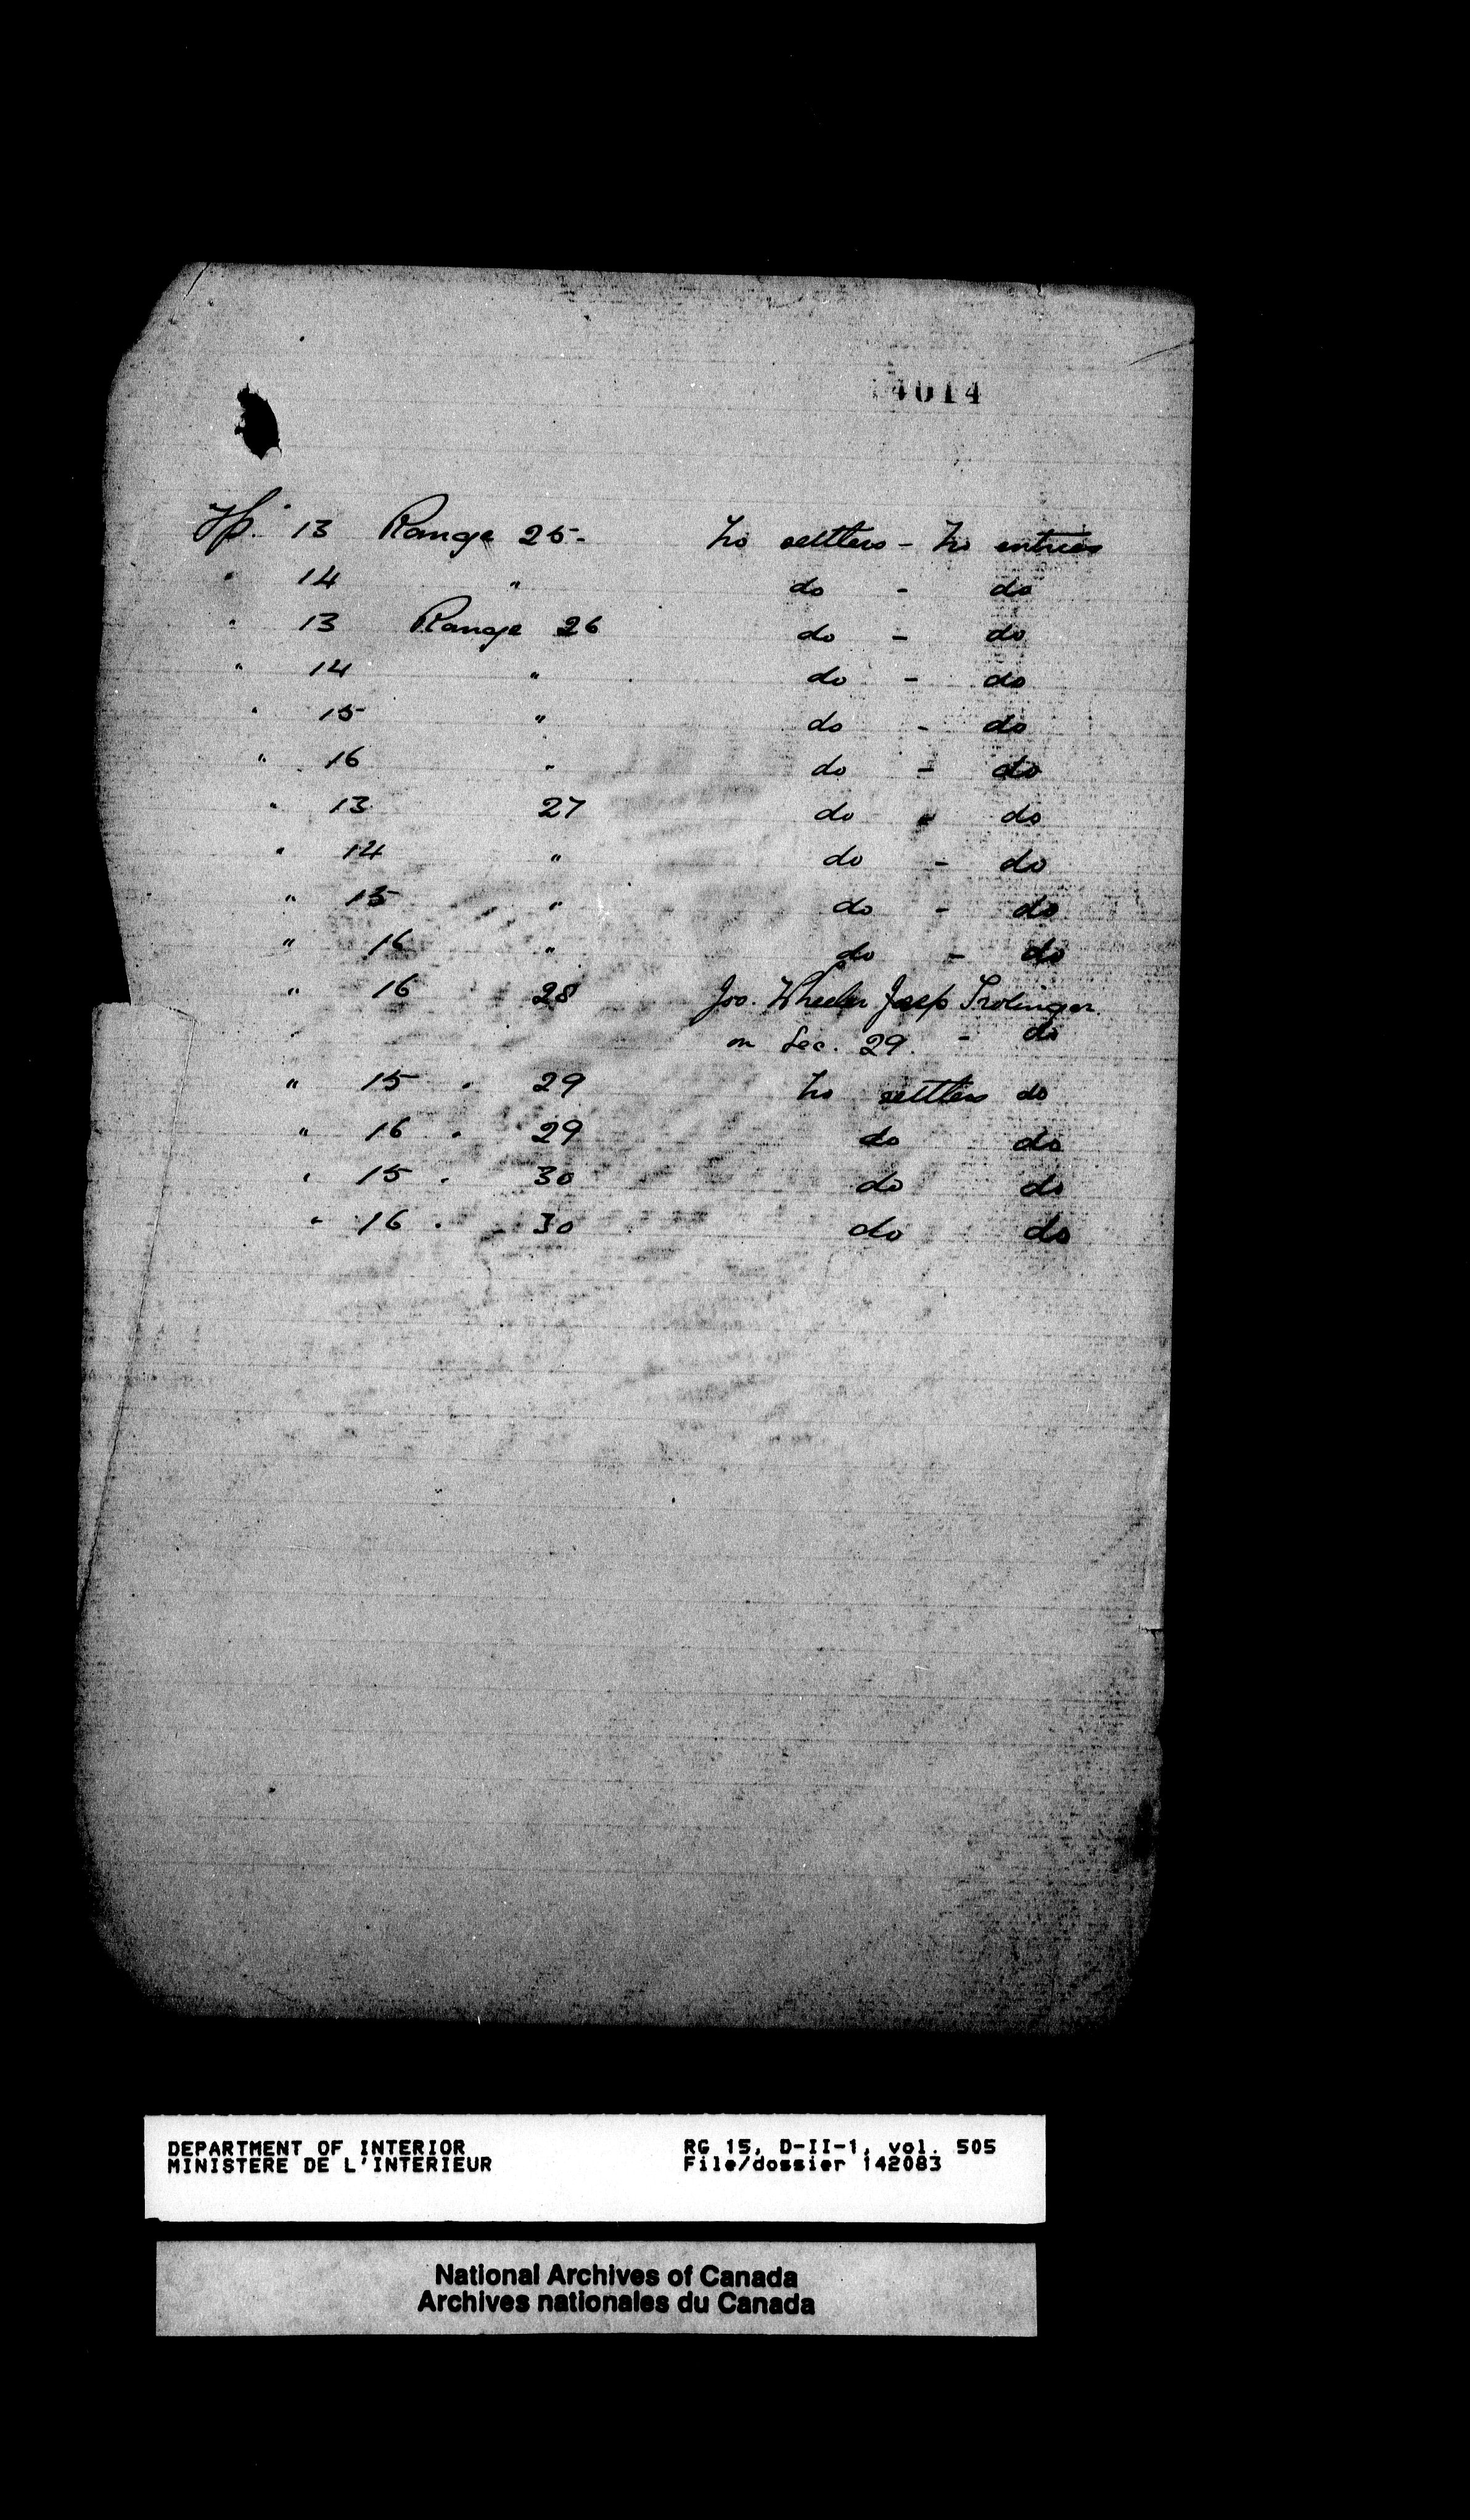 4014
Tp. 13 Range 25- No settlers - No entries
" 14 " do - do
" 13 Range 26 do - do
" 14 " do - do
" 15 " do - do
" 16 " do - do
" 13 27 do " do
" 14 " do - do
" 15 " do - do
" 16 " do - do
" 16 28 Jos. Wheeler Trolinger
on Sec. 29. - do
" 15 " 29 No settlers do
" 16 " 29 do do
" 15 " 30 do do
" 16 " 30 do do
DEPARTMENT OF INTERIOR RG 15, D-II-1, vol. 505
MINISTERE DE L'INTERIEUR File/dossier 142083
National Archives of Canada
Archives nationales du Canada